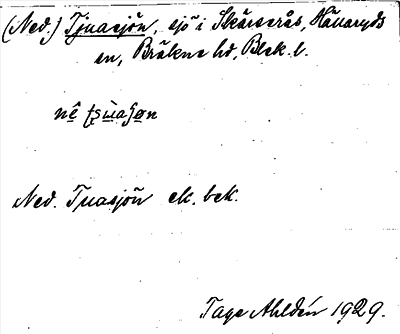 (Ned.) Tjuasjön, sjö i Skärserås, Hällaryds
sn, Bräkne hd, Blek. l.
Ned. Tuasjön ek. bek.
Tage Ahldén 1929.